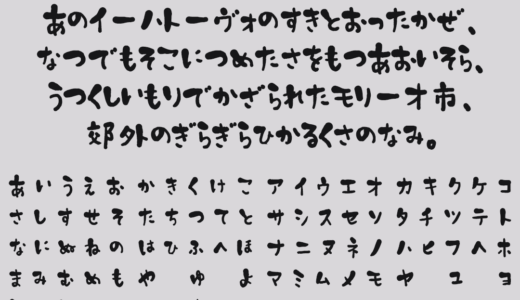 あのイーハトーヴォのすきとおったかぜ、
なつでもそこにつめたさをもつあおいそら、
うつくしいもりでかざられたモリーオ市、
郊外のぎらぎらひかるくさのなみ。
あいうえおかきくけこアイウエオカキクケコ
さしすせそたちつてとサシスセソタチツテト
なにぬねのはひふへほナニヌネノハヒフヘホ
まみむめもやゆよマミムメモヤユヨ